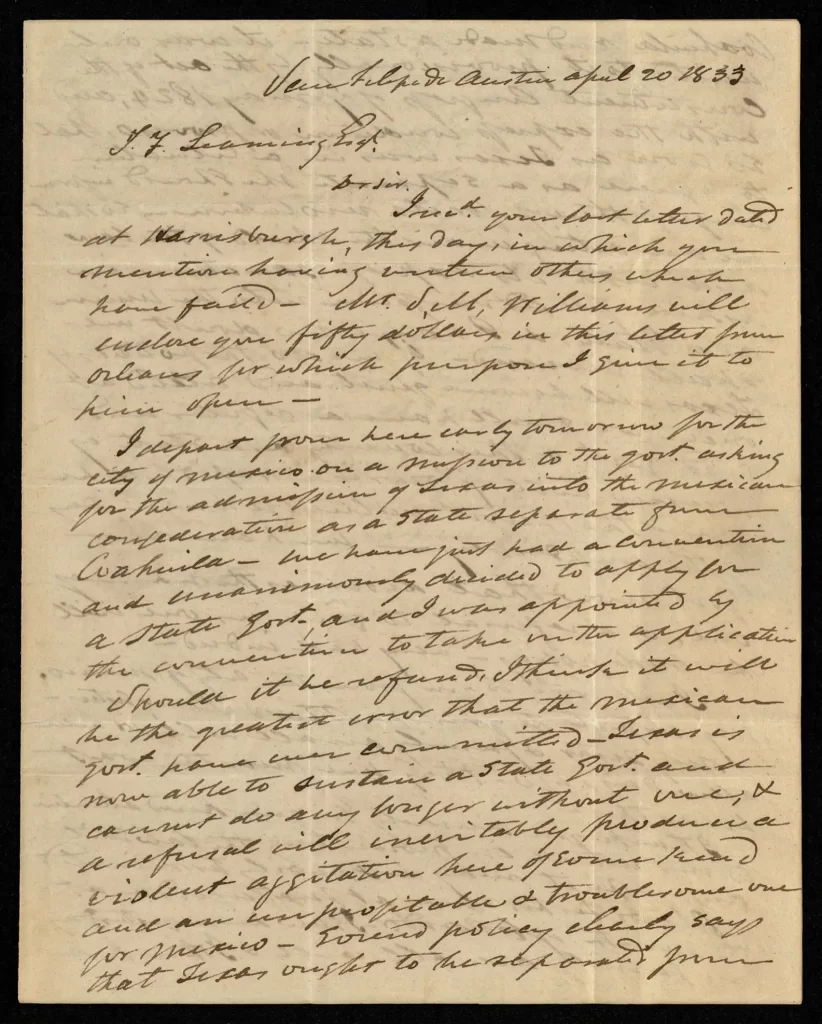 San Felipe de Austin april 20 1833
T. F. Leaming Esqr.
Dr sir.
I recd. your last letter dated
at Harrisburgh, this day, in which you
mention having written others which
have faild — Mr. S, M, Williams will
enclose you fifty dollars in this letter from
orleans for which purpose I give it to
him open —
I depart from here early tomorrow for the
city of mexico on a mission to the govt. asking
for the admission of Texas into the mexican
confederation as a State separate from
Coahuila — we have just had a convention
and unanimously decided to apply for
a State Govt., and I was appointed by
the convention to take on the application
Should it be refused, I think it will
be the greatest error that the mexican
govt. have ever committed — Texas is
now able to sustain a State Govt. and
cannot do any longer without one, &
a refusal will inevitably produce a
violent aggitation here of some kind
and an unprofitable & troublesome one
for mexico — Sound policy clearly says
that Texas ought to be separated from